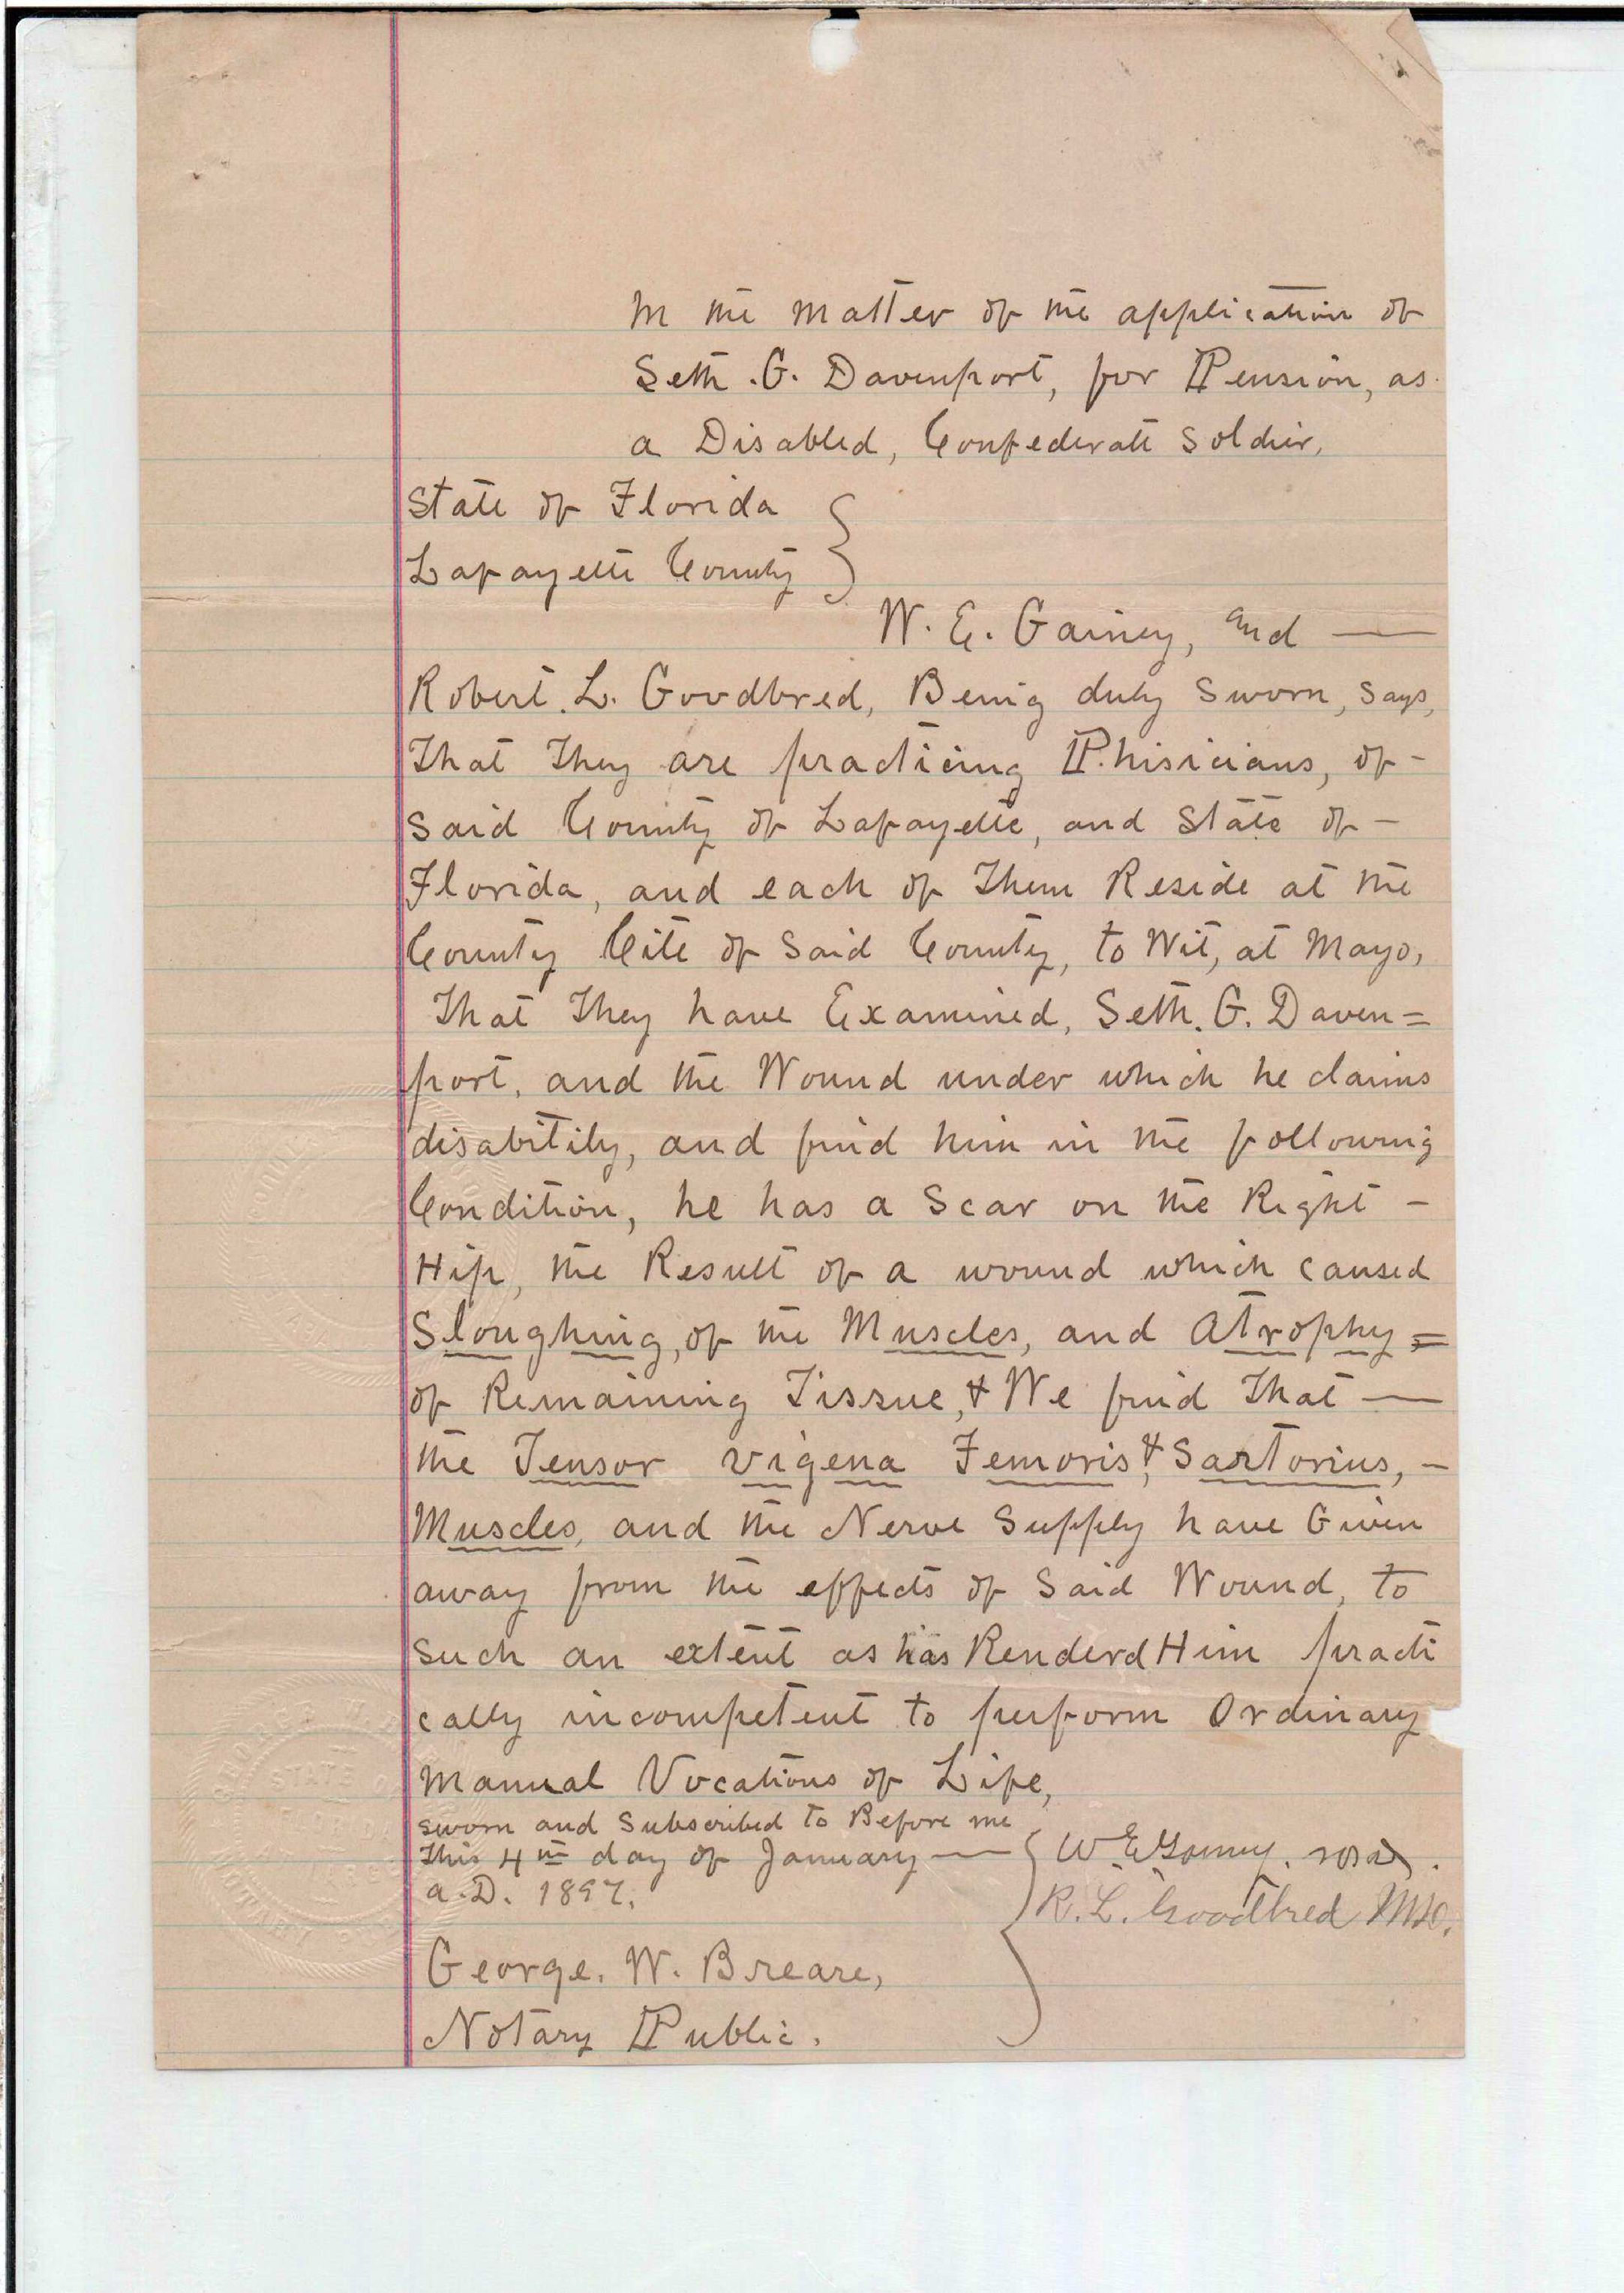 In the matter of the application of
Seth. G. Davenport, for Pension, as
a Disabled, Confederate Soldier,
State of Florida
Lafayette County
W. E. Gainey, and —
Robert. L. Goodbred, Being duly sworn, says,
That They are practicing Phisicians, of -
said County of Lafayette, and State of -
Florida, and each of Them Reside at the
County Cite of said County, to Wit, at Mayo,
That They have Examined, Seth. G. Daven=
port, and the Wound under which he claims
disabitily, and find him in the following
Condition, he has a Scar on the Right -
Hip, the Result of a wound which caused
Sloughing, of the Muscles, and Atrophy =
of Remaining Tissue, & We find That —
the Tensor vigena Femoris, & Sartorius, -
Muscles, and the Nerve Supply have Given
away from the effects of Said Wound, to
such an extent as has Renderd Him practi
cally incompetent to perform Ordinary
Manual Vocations of Life,
sworn and Subscribed to Before me
This 4th day of January —
a.D. 1897.
W E Gainey. M.D.
R. L. Goodbred MD.
George. W. Breare,
Notary Public.
STATE OF